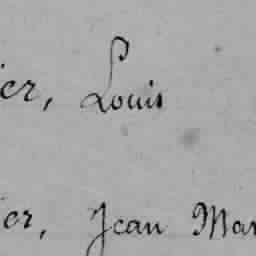 ier, Louis
ier, Jean Mar